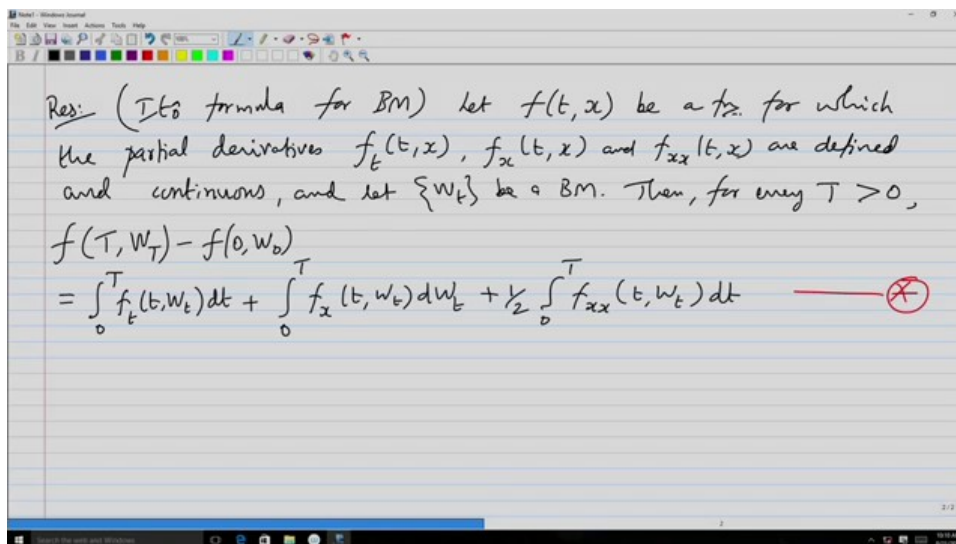 Note1 - Windows Journal
File Edit View Insert Actions Tools Help
B I
Res: (Itô formula for BM) Let f(t, x) be a fn. for which
the partial derivatives f_t(t,x), f_x(t,x) and f_xx(t,x) are defined
and continuous, and let {W_t} be a BM. Then, for every T > 0,
f(T, W_T) - f(0, W_0)
= ∫_0^T f_t(t,W_t) dt + ∫_0^T f_x(t,W_t) dW_t + 1/2 ∫_0^T f_xx(t,W_t) dt ——— *
2/2
2
Search the web and Windows